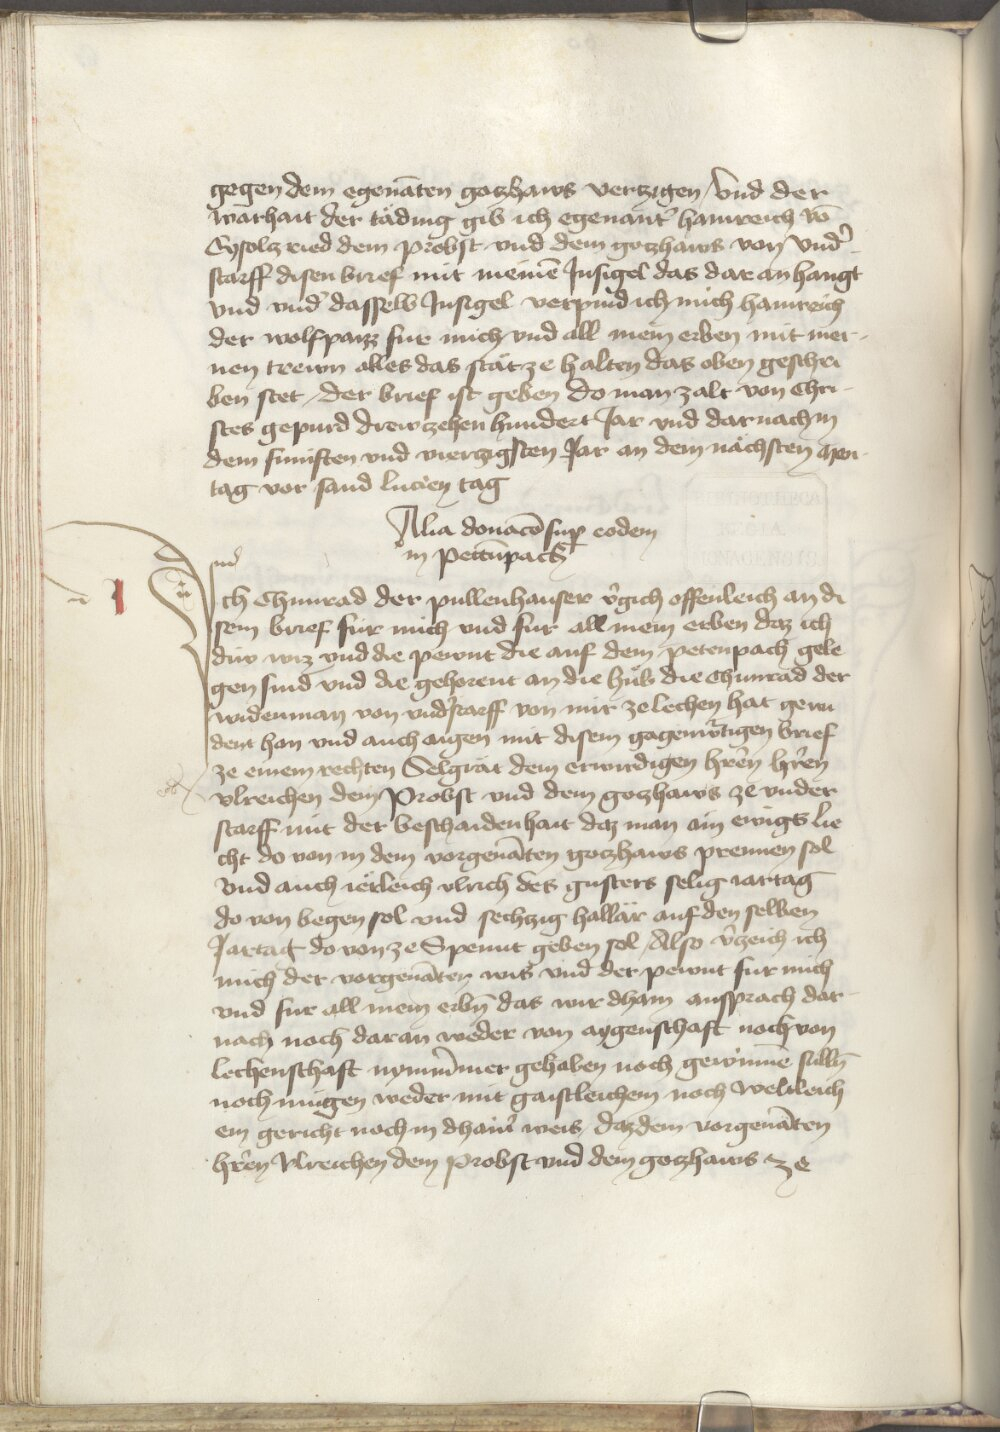 gegen dem egenāten gotzhaws vertzigen / vnd der
warhait der täding gib ich egenant hainreich vō
Eysoltzried dem Probst vnd dem gotzhaws von vnd'
starff disen brief mit meinē Insigel das dar an hangt
vnd vnd' dasselb Insigel verpind ich mich hainreich
der wolfpaizz fur mich vnd all mein erben mit mei-
nen trewn alles das stät ze halten das oben geschri
ben stet / der brief ist geben do man zalt von Chri-
stes gepurd drewzehen hundert Jar vnd darnach in
dem funften vnd vierzigsten Jar an dem nächsten men-
tag vor sand lucien tag
Alia donacō sup eodem
in Petēnpach
I
Ich Chunrad der pullenhauser v'gich offenleich an di
sem brief für mich vnd fur all mein erben daz ich
die wiz vnd die pewnt die auf dem petenpach gele
gen sind vnd die gehorent an die hůb die Chunrad der
widenman von vnd'starff von mir ze lechen hat gewi
dent han vnd auch aigen mit disem gagenw'tigen brief
ze einem rechten Selgrät dem erwirdigen hr'en hr'en
vlreichen dem Probst vnd dem gotzhaws ze vnder
starff mit der beschaidenhait daz man ain ewigs lie
cht do von in dem vorgenāten gotzhaws prennen sol
vnd auch ierleich vlrich des gusters selig iartag
do von begen sol vnd sechzig hallär auf den selben
Jartag do von ze Spennt geben sol / Also v'zeich ich
mich der vorgenāten wis vnd der pewnt fur mich
vnd fur all mein erbn̄ das wir dhain ansprach dar-
nach noch daran weder von aygenschaft noch von
lechenschaft nymm̄mer gehaben noch gewinnē sülln̄
noch mügen weder mit gaistleichem noch weltleich
em gericht noch in dhain' weis / daz dem vorgenāten
hr'en Vlreichen dem Probst vnd dem gotzhaws ze